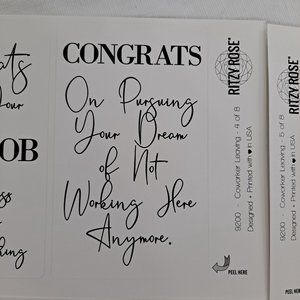 ats
Your
OB
ss
thing
CONGRATS
On Pursuing
Your Dream
of Not
Working Here
Anymore.
RITZY ROSE
9200 - Coworker Leaving - 4 of 8
Designed + Printed with ♥ in USA
PEEL HERE
RITZY ROSE
9200 - Coworker Leaving - 5 of 8
Designed + Printed with ♥ in USA
PEEL HERE